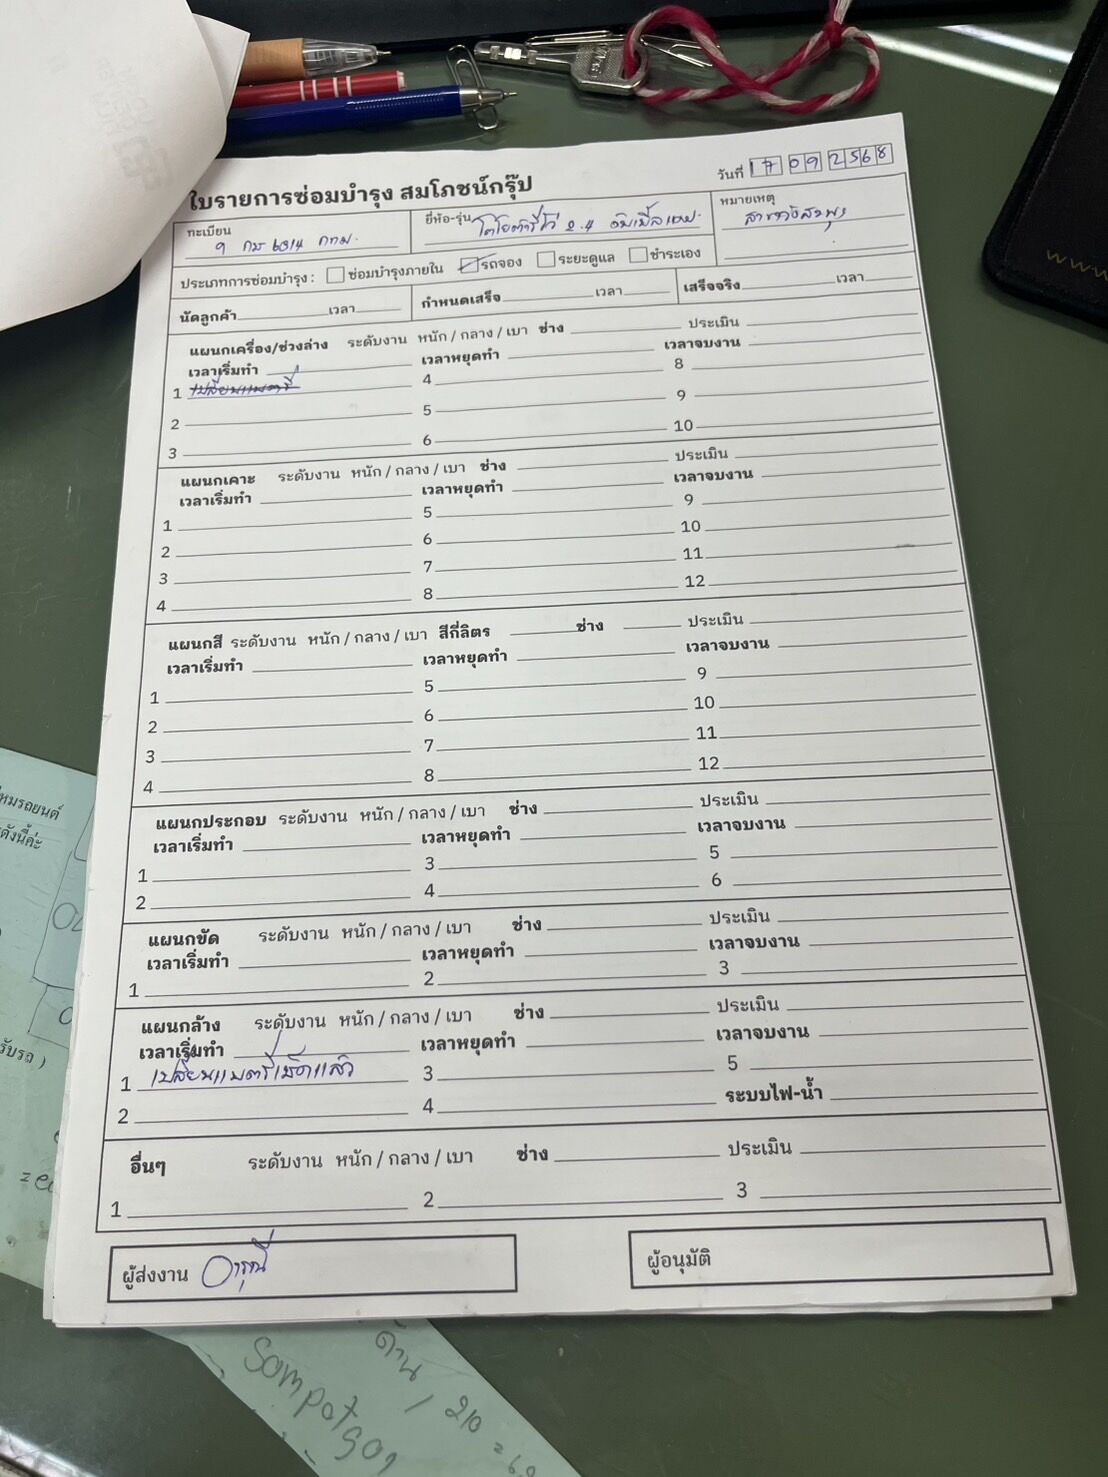 ใบรายการซ่อมบำรุง สมโภชน์กรุ๊ป
วันที่ 17 09 2568
ทะเบียน 9 กม 6314 กทม.
ยี่ห้อ-รุ่น โตโยต้ารีโว่ 2.4
หมายเหตุ
ประเภทการซ่อมบำรุง : ซ่อมบำรุงภายใน รถจอง ระยะดูแล ชำระเอง
นัดลูกค้า เวลา กำหนดเสร็จ เวลา เสร็จจริง เวลา
แผนกเครื่อง/ช่วงล่าง ระดับงาน หนัก / กลาง / เบา ช่าง ประเมิน
เวลาเริ่มทำ เวลาหยุดทำ เวลาจบงาน
1 เปลี่ยนแบตรี่ 4 8
2 5 9
3 6 10
แผนกเคาะ ระดับงาน หนัก / กลาง / เบา ช่าง ประเมิน
เวลาเริ่มทำ เวลาหยุดทำ เวลาจบงาน
1 5 9
2 6 10
3 7 11
4 8 12
แผนกสี ระดับงาน หนัก / กลาง / เบา สีกี่ลิตร ช่าง ประเมิน
เวลาเริ่มทำ เวลาหยุดทำ เวลาจบงาน
1 5 9
2 6 10
3 7 11
4 8 12
แผนกประกอบ ระดับงาน หนัก / กลาง / เบา ช่าง ประเมิน
เวลาเริ่มทำ เวลาหยุดทำ เวลาจบงาน
1 3 5
2 4 6
แผนกขัด ระดับงาน หนัก / กลาง / เบา ช่าง ประเมิน
เวลาเริ่มทำ เวลาหยุดทำ เวลาจบงาน
1 2 3
แผนกล้าง ระดับงาน หนัก / กลาง / เบา ช่าง ประเมิน
เวลาเริ่มทำ เวลาหยุดทำ เวลาจบงาน
1 เปลี่ยนแบตรี่เช็ดแล้ว 3 5
2 4 ระบบไฟ-น้ำ
อื่นๆ ระดับงาน หนัก / กลาง / เบา ช่าง ประเมิน
1 2 3
ผู้ส่งงาน
ผู้อนุมัติ
ดังนี้ค่ะ
รับรถ )
ด้าน , 210